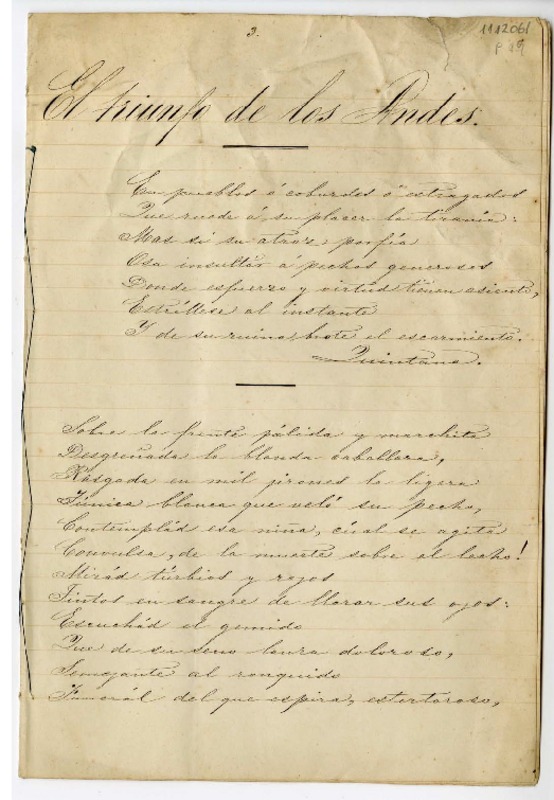 3.
1112061
P 49
El triunfo de los Andes.
En pueblos ó cobardes ó estragados
Que ruede á su placer la tiranía:
Mas si su atroz porfía
Osa insultar á pechos generosos
Donde esfuerzo y virtud tienen asiento,
Estréllese al instante
Y de su ruina brote el escarmiento.
Quintana.
Sobre la frente pálida y marchita
Desgreñada la blonda caballera,
Rasgada en mil jirones la ligera
Túnica blanca que veló su pecho,
Contemplád esa niña, cúal se agita
Convulsa, de la muerte sobre el lecho!
Mirád túrbios y rojos
Tintos en sangre de llorar sus ojos:
Escuchád el gemido
Que de su seno lanza doloroso,
Semejante al ronquido
Funerál del que espira, estertoroso,